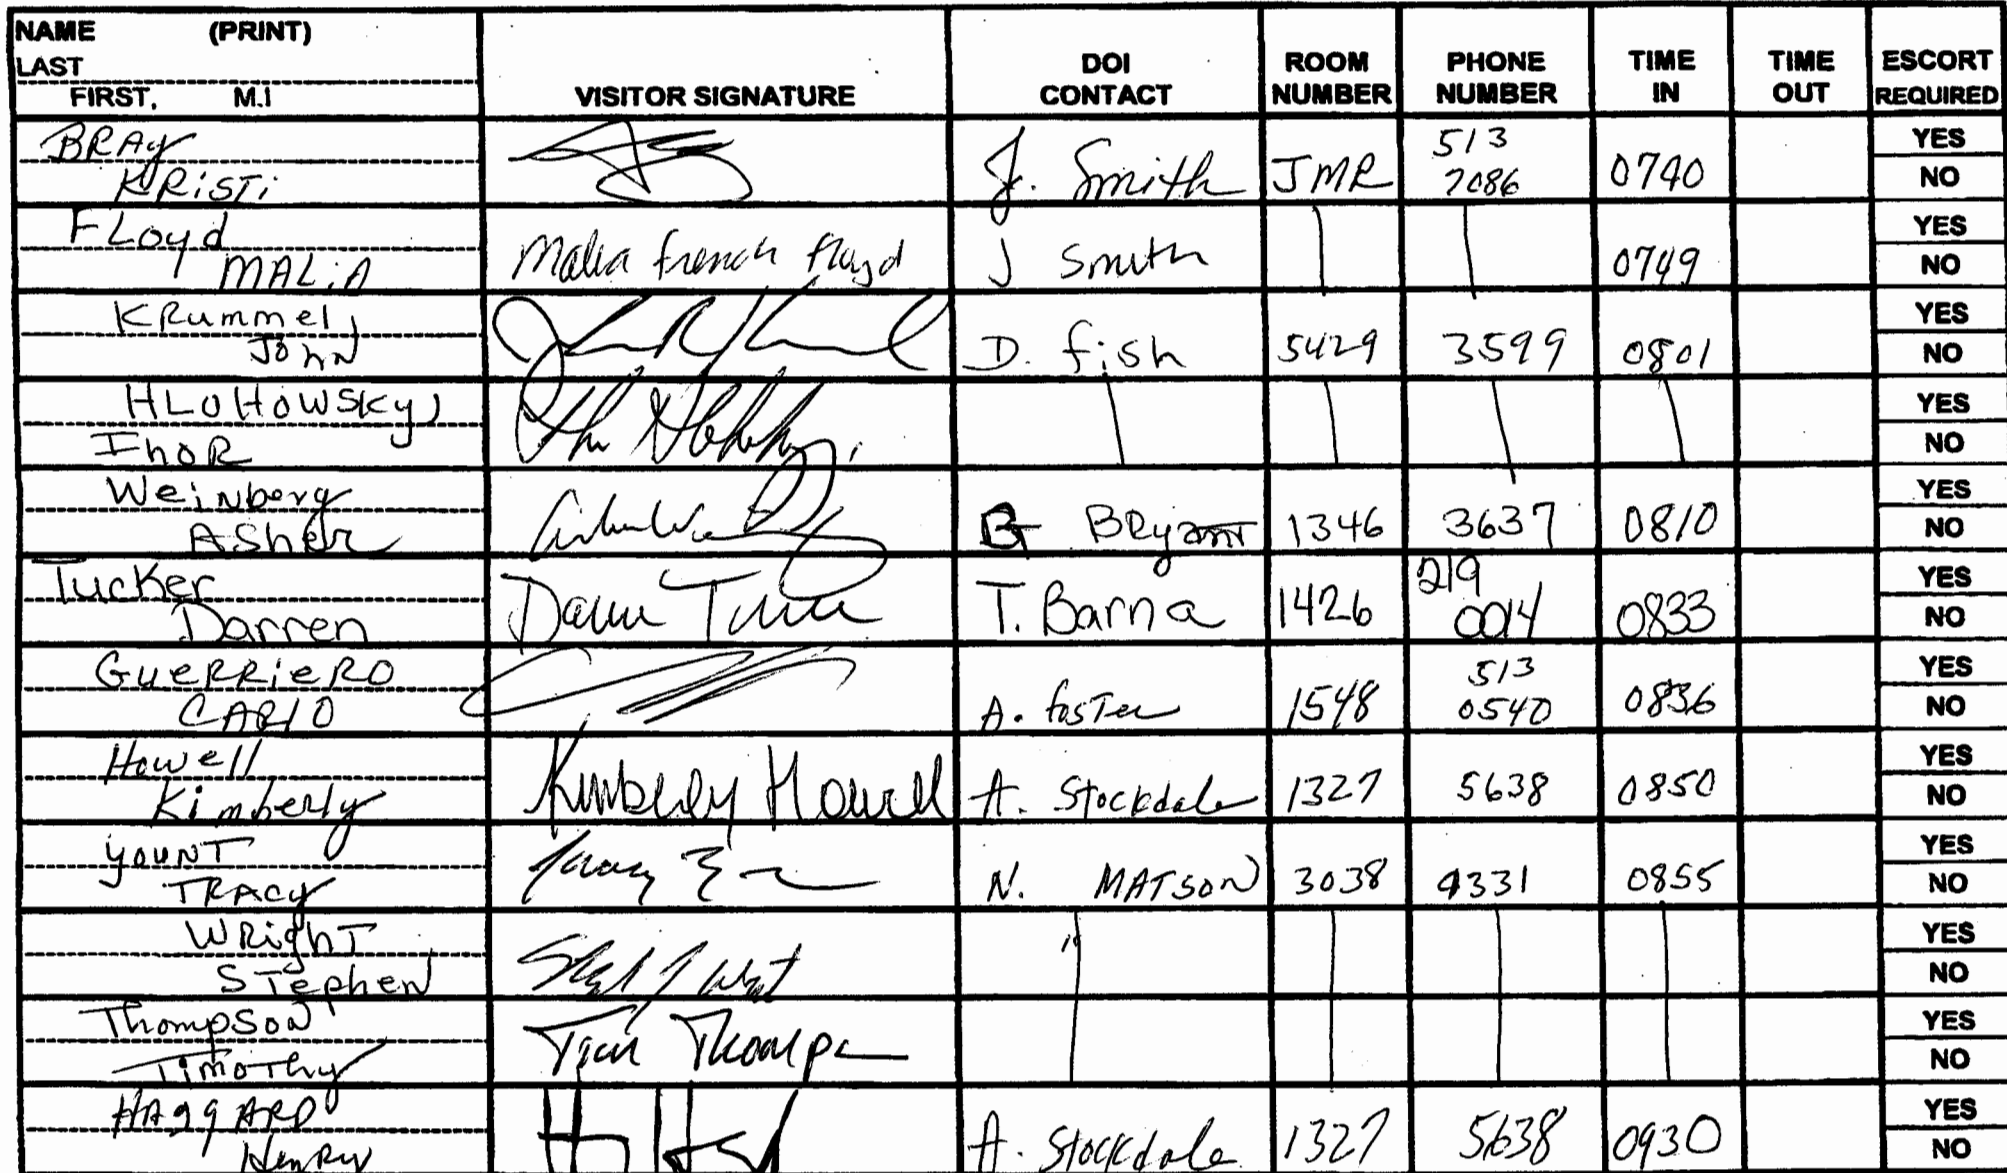 NAME (PRINT)
LAST
FIRST, M.I
VISITOR SIGNATURE
DOI CONTACT
ROOM NUMBER
PHONE NUMBER
TIME IN
TIME OUT
ESCORT REQUIRED
BRAY KRiSTi J. Smith JMR 513 7086 0740 YES NO
FLoyd MALiA Malia French Floyd J Smith 0749 YES NO
KRummel, John D. fish 5429 3599 0801 YES NO
HLOHOWSKY, IhoR YES NO
WeiNberg ASher B BRyant 1346 3637 0810 YES NO
Tucker Darren T. Barna 1426 219 0014 0833 YES NO
GueRRieRO CARlO A. foster 1548 513 0540 0836 YES NO
Howell Kimberly Kimberly Howell A. Stockdale 1327 5638 0850 YES NO
YOUNT TRACY N. MATSON 3038 4331 0855 YES NO
WRighT STephen YES NO
Thompson TimoThy Tim YES NO
HAggARD HenRy A. Stockdale 1327 5638 0930 YES NO